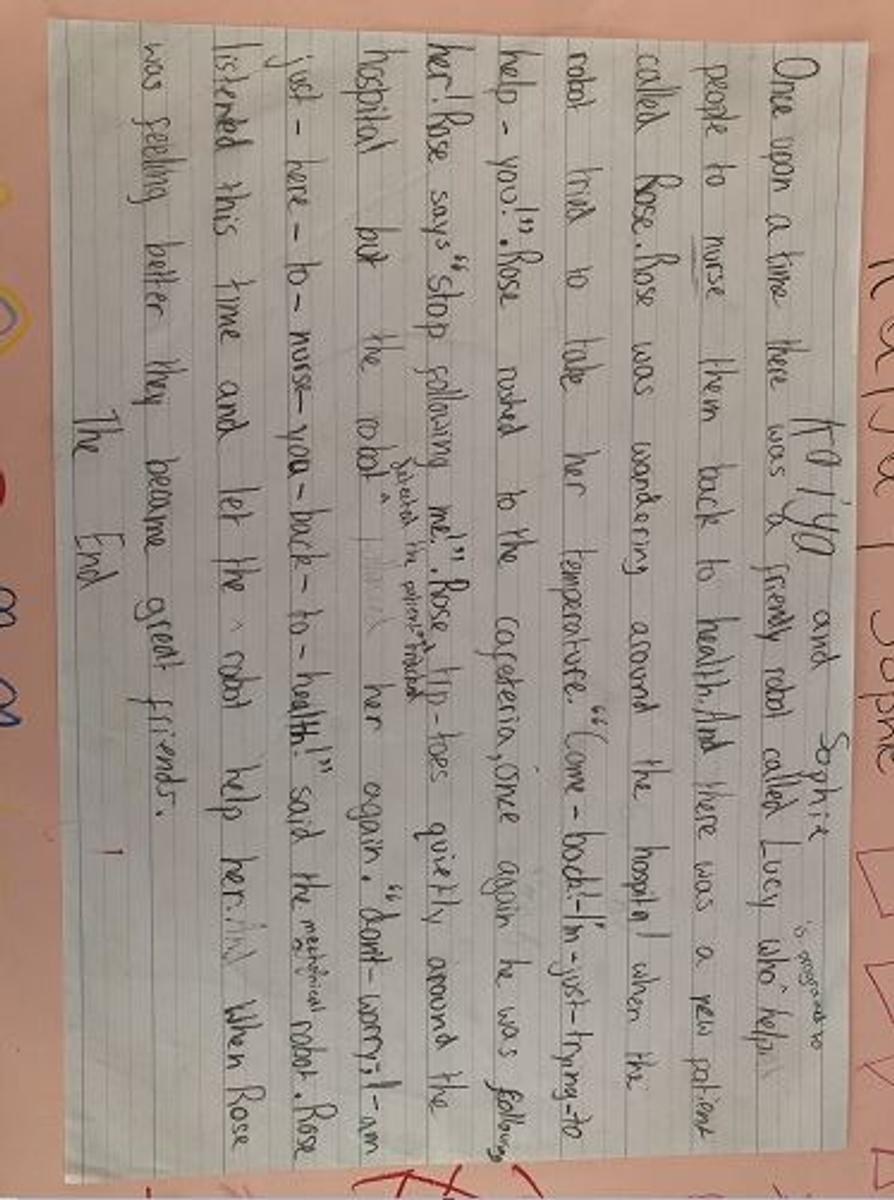 Kaiya and Sophie
Once upon a time there was a friendly robot called Lucy who ^ help
is programed to
people to nurse them back to health. And there was a new patient
called Rose. Rose was wandering around the hospital when the
robot tried to take her temperature. "Come-back!-I'm-just-trying-to
help-you!". Rose rushed to the cafeteria, once again he was following
her! Rose says "stop following me!". Rose tip-toes quietly around the
hospital but the robot ^ her again. "don't-worry,-I-am
detected the patient and
just-here-to-nurse-you-back-to-health!" said the mechanical robot. Rose
listened this time and let the ^ robot help her. And When Rose
was feeling better they became great friends.
The End
Sophie